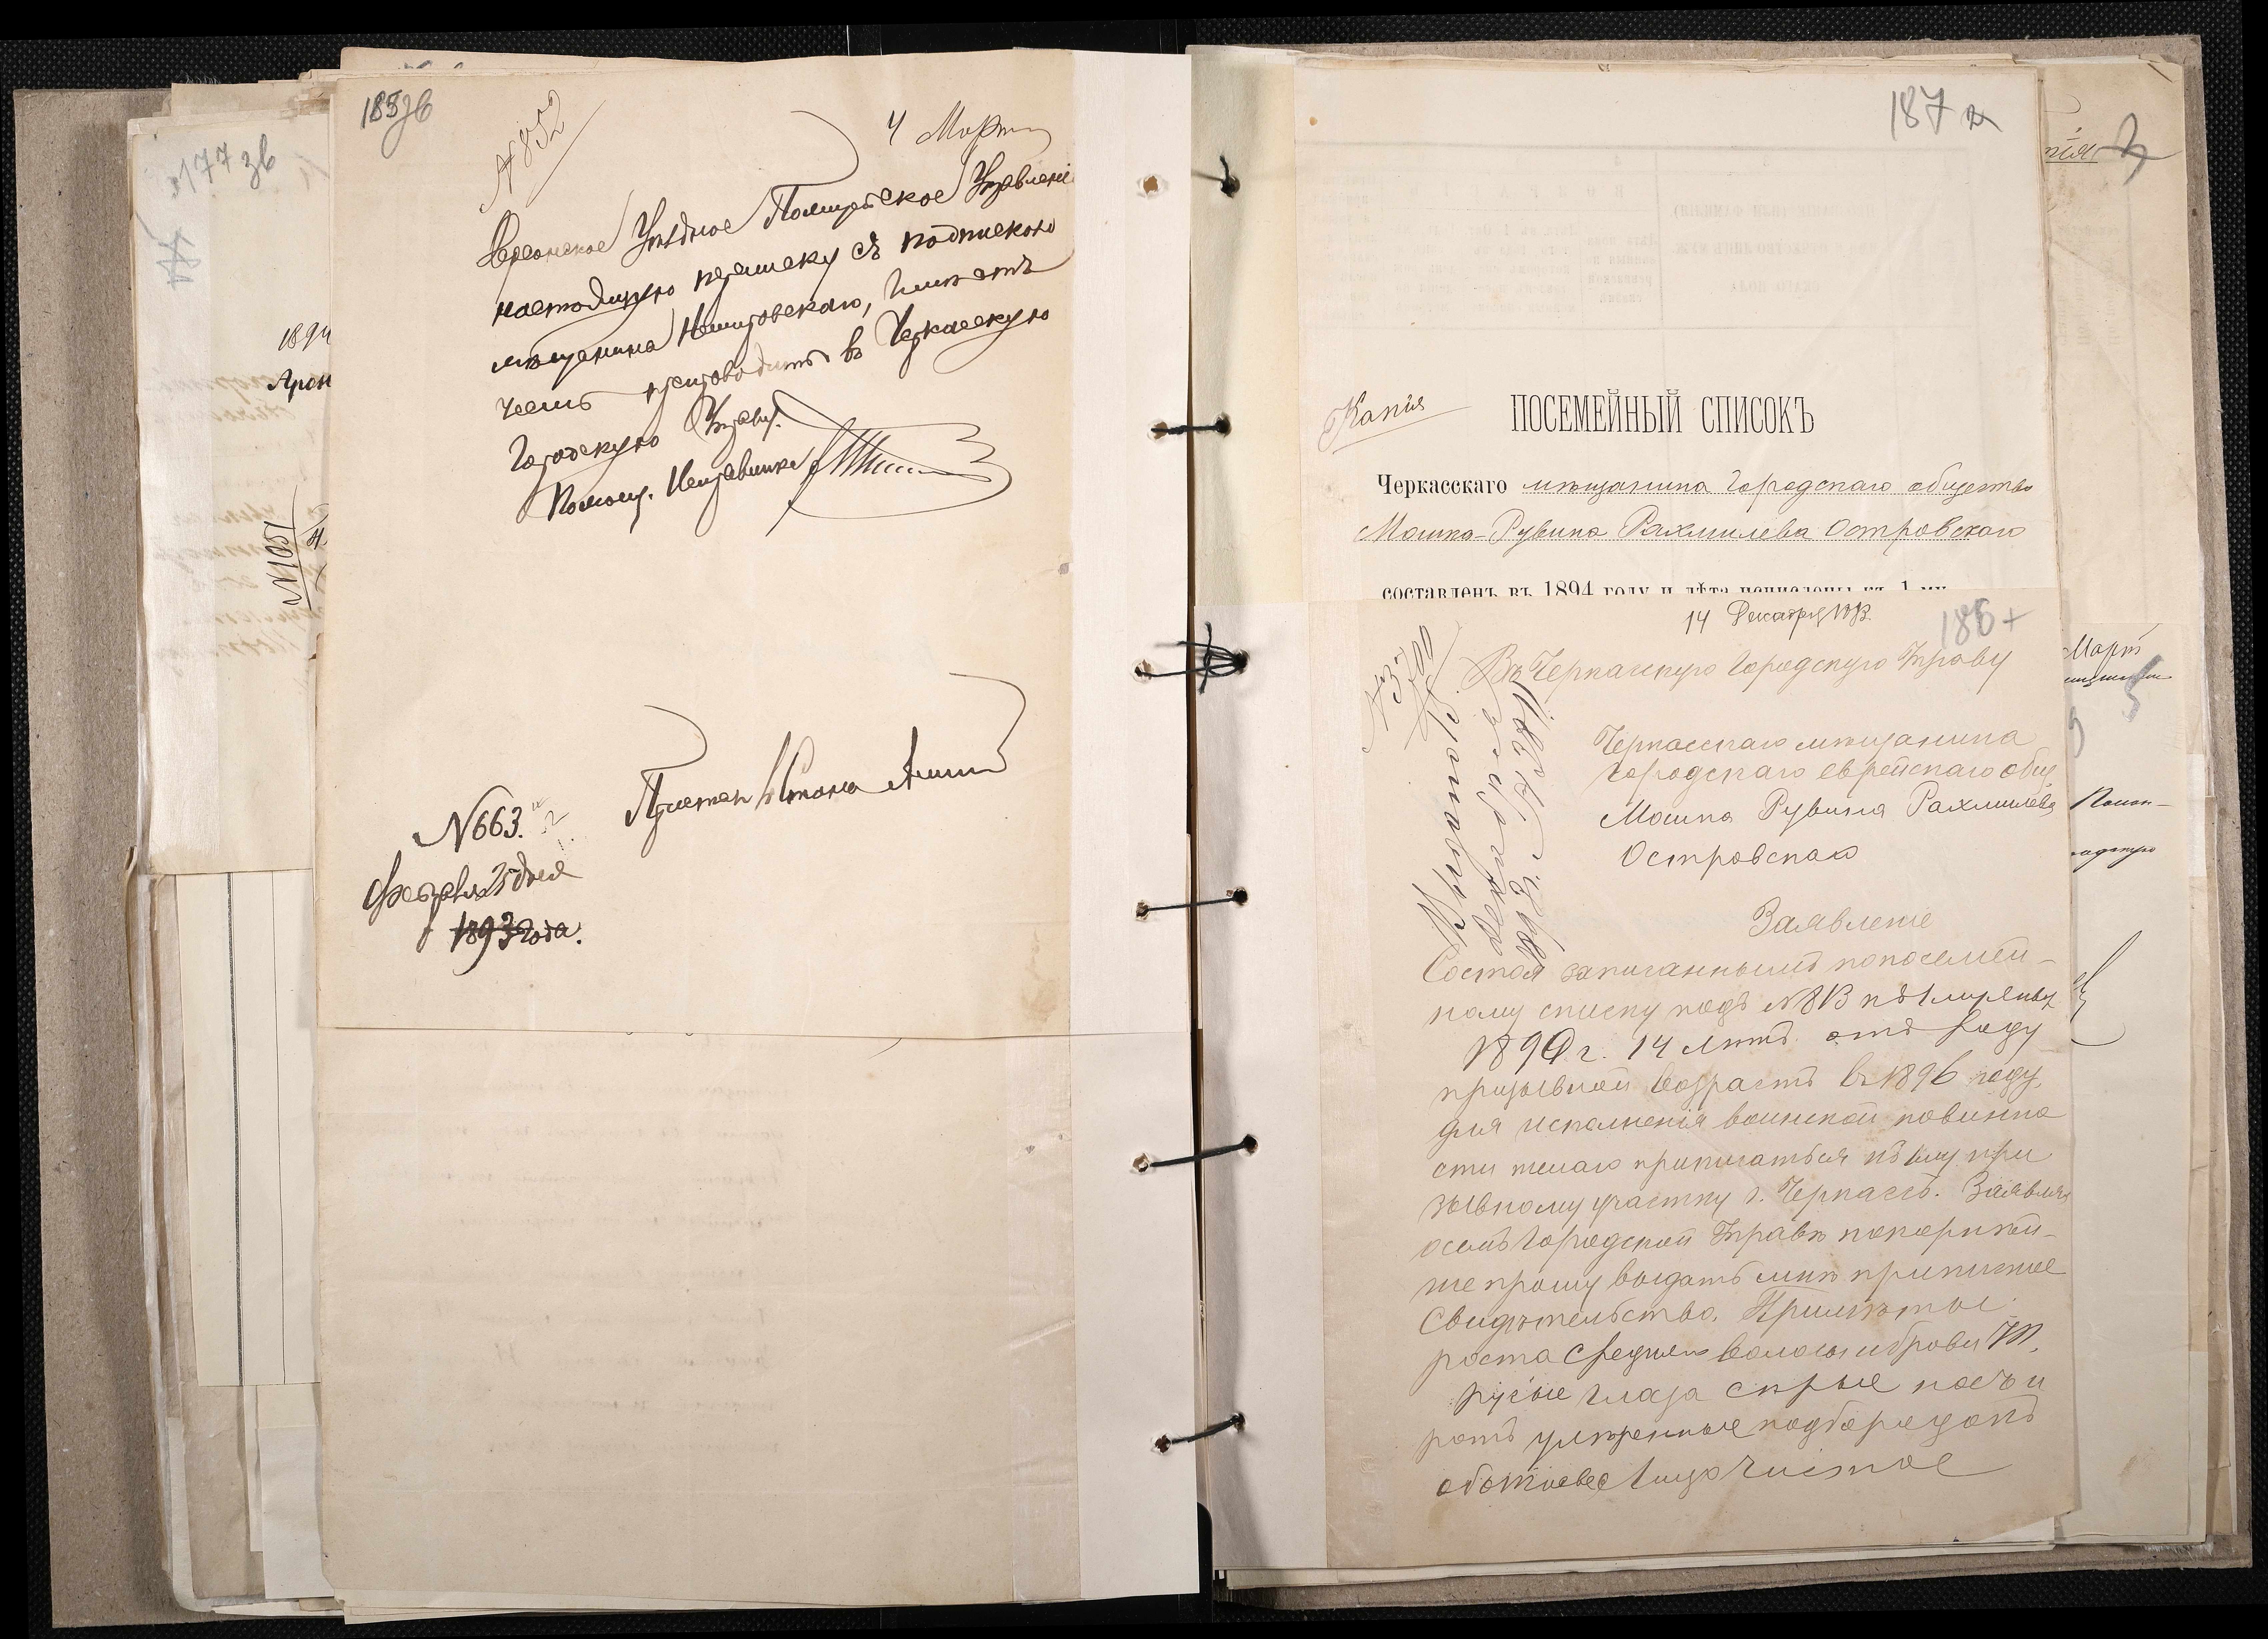 177 зв
1894
Арон
№1051
185 зв
№852
4 Марта
Херсонское Уѣздное Полицейское Управленіе
настоящую переписку съ подпискою
мѣщанина Немировскаго, имѣетъ
честь препроводить въ Черкасскую
Городскую Управу.
Помощ. Исправника
Приставъ 1 Стана
№663.
Февраля 25 дня
1893 года.
187
Копія
ПОСЕМЕЙНЫЙ СПИСОКЪ
Черкасскаго мѣщанина Городскаго общества
Мошка-Рувина Рахмилева Островскаго
составленъ въ 1894 году и лѣта исчислены къ 1-му
14 Декабря
186
№3700
Въ Черкасскую Городскую Управу
Черкасскаго мѣщанина
городскаго еврейскаго общ
Мошка Рувина Рахмилева
Островскаго
Заявленіе
Состоя записаннымъ по посемей-
ному списку подъ №813 къ 1 Января
1890 г. 14 лѣтъ отъ роду
призывной возрастъ въ 1896 году,
для исполненія воинской повинно
сти желаю приписаться къ 1му при
зывному участку г. Черкассъ. Заявляя
о семъ Городской Управѣ покорнѣй-
ше прошу выдать мнѣ приписное
Свидѣтельство. Примѣты
роста средняго волосы и брови
русые глаза сѣрые носъ и
ротъ умѣренные подбородокъ
лицо чистое
Март